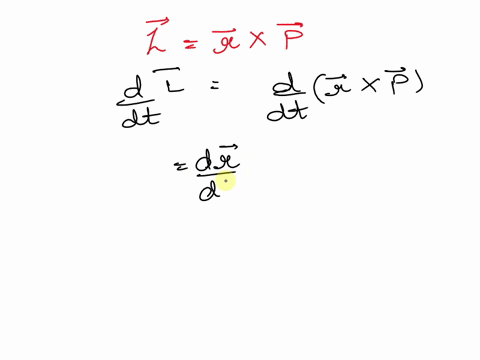 \vec{L} = \vec{r} × \vec{P}
\frac{d}{dt} \vec{L} = \frac{d}{dt} (\vec{r} × \vec{P})
= \frac{d\vec{r}}{d